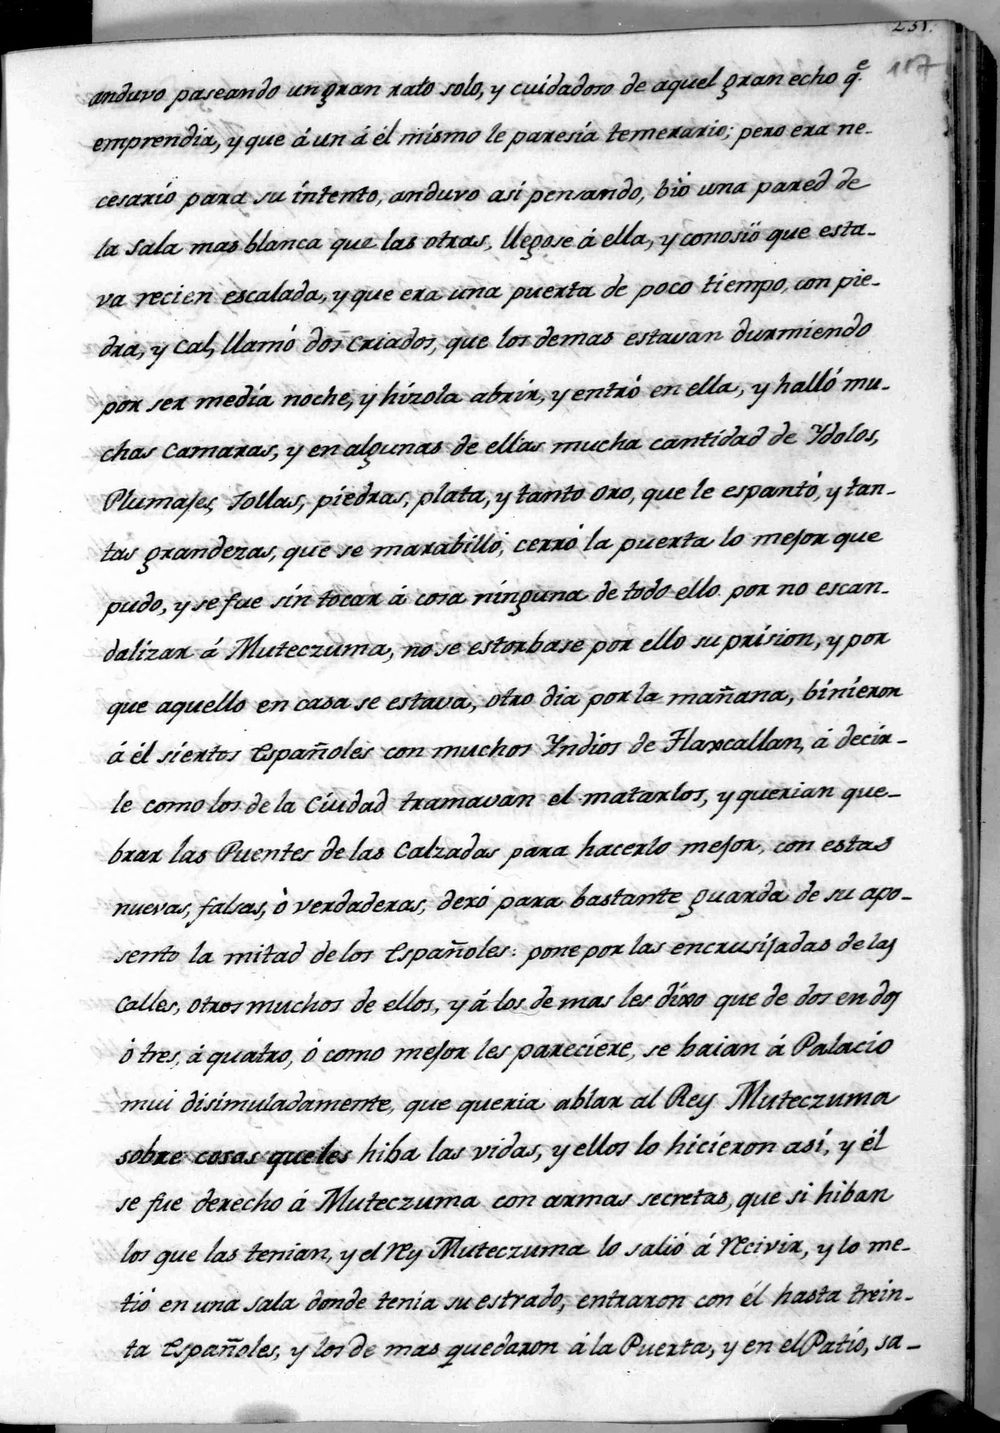 231.
117
anduvo paseando un gran rato solo, y cuidadoso de aquel gran echo q.e
emprendia, y que á un á él mismo le paresía temerario; pero era ne-
cesario para su intento, anduvo asi pensando, bió una pared de
la sala mas blanca que las otras, llegose á ella, y conosió que esta-
va recien escalada, y que era una puerta de poco tiempo, con pie-
dra, y cal, llamó dos criados, que los demas estavan durmiendo
por ser media noche, y hízola abrir, y entró en ella, y halló mu-
chas camaras, y en algunas de ellas mucha cantidad de Ydolos,
Plumajes, Jollas, piedras, plata, y tanto oro, que le espantó, y tan-
tas grandezas, que se marabilló; cerró la puerta lo mejor que
pudo, y se fue sin tocar á cosa ninguna de todo ello por no escan-
dalizar á Muteczuma, no se estorbase por ello su prision, y por
que aquello en casa se estava, otro dia por la mañana, binieron
á él siertos Españoles con muchos Yndios de Tlaxcallan, á decir-
le como los de la Ciudad tramavan el matarlos, y querian que-
brar las Puentes de las Calzadas para hacerlo mejor, con estas
nuevas, falsas, ò verdaderas, dexó para bastante guarda de su apo-
sento la mitad de los Españoles: pone por las encrusijadas de las
Calles, otros muchos de ellos, y á los de mas les dixo que de dos en dos
ò tres, á quatro, ó como mejor les pareciere, se baian á Palacio
mui disimuladamente, que queria ablar al Rey Muteczuma
sobre cosas que les hiba las vidas, y ellos lo hicieron asi, y él
se fue derecho á Muteczuma con armas secretas, que si hiban
los que las tenian, y el Rey Muteczuma lo salió á Recivir, y lo me-
tió en una sala donde tenia su estrado, entraron con él hasta trein-
ta Españoles, y los de mas quedaron á la Puerta, y en el Patio, sa-